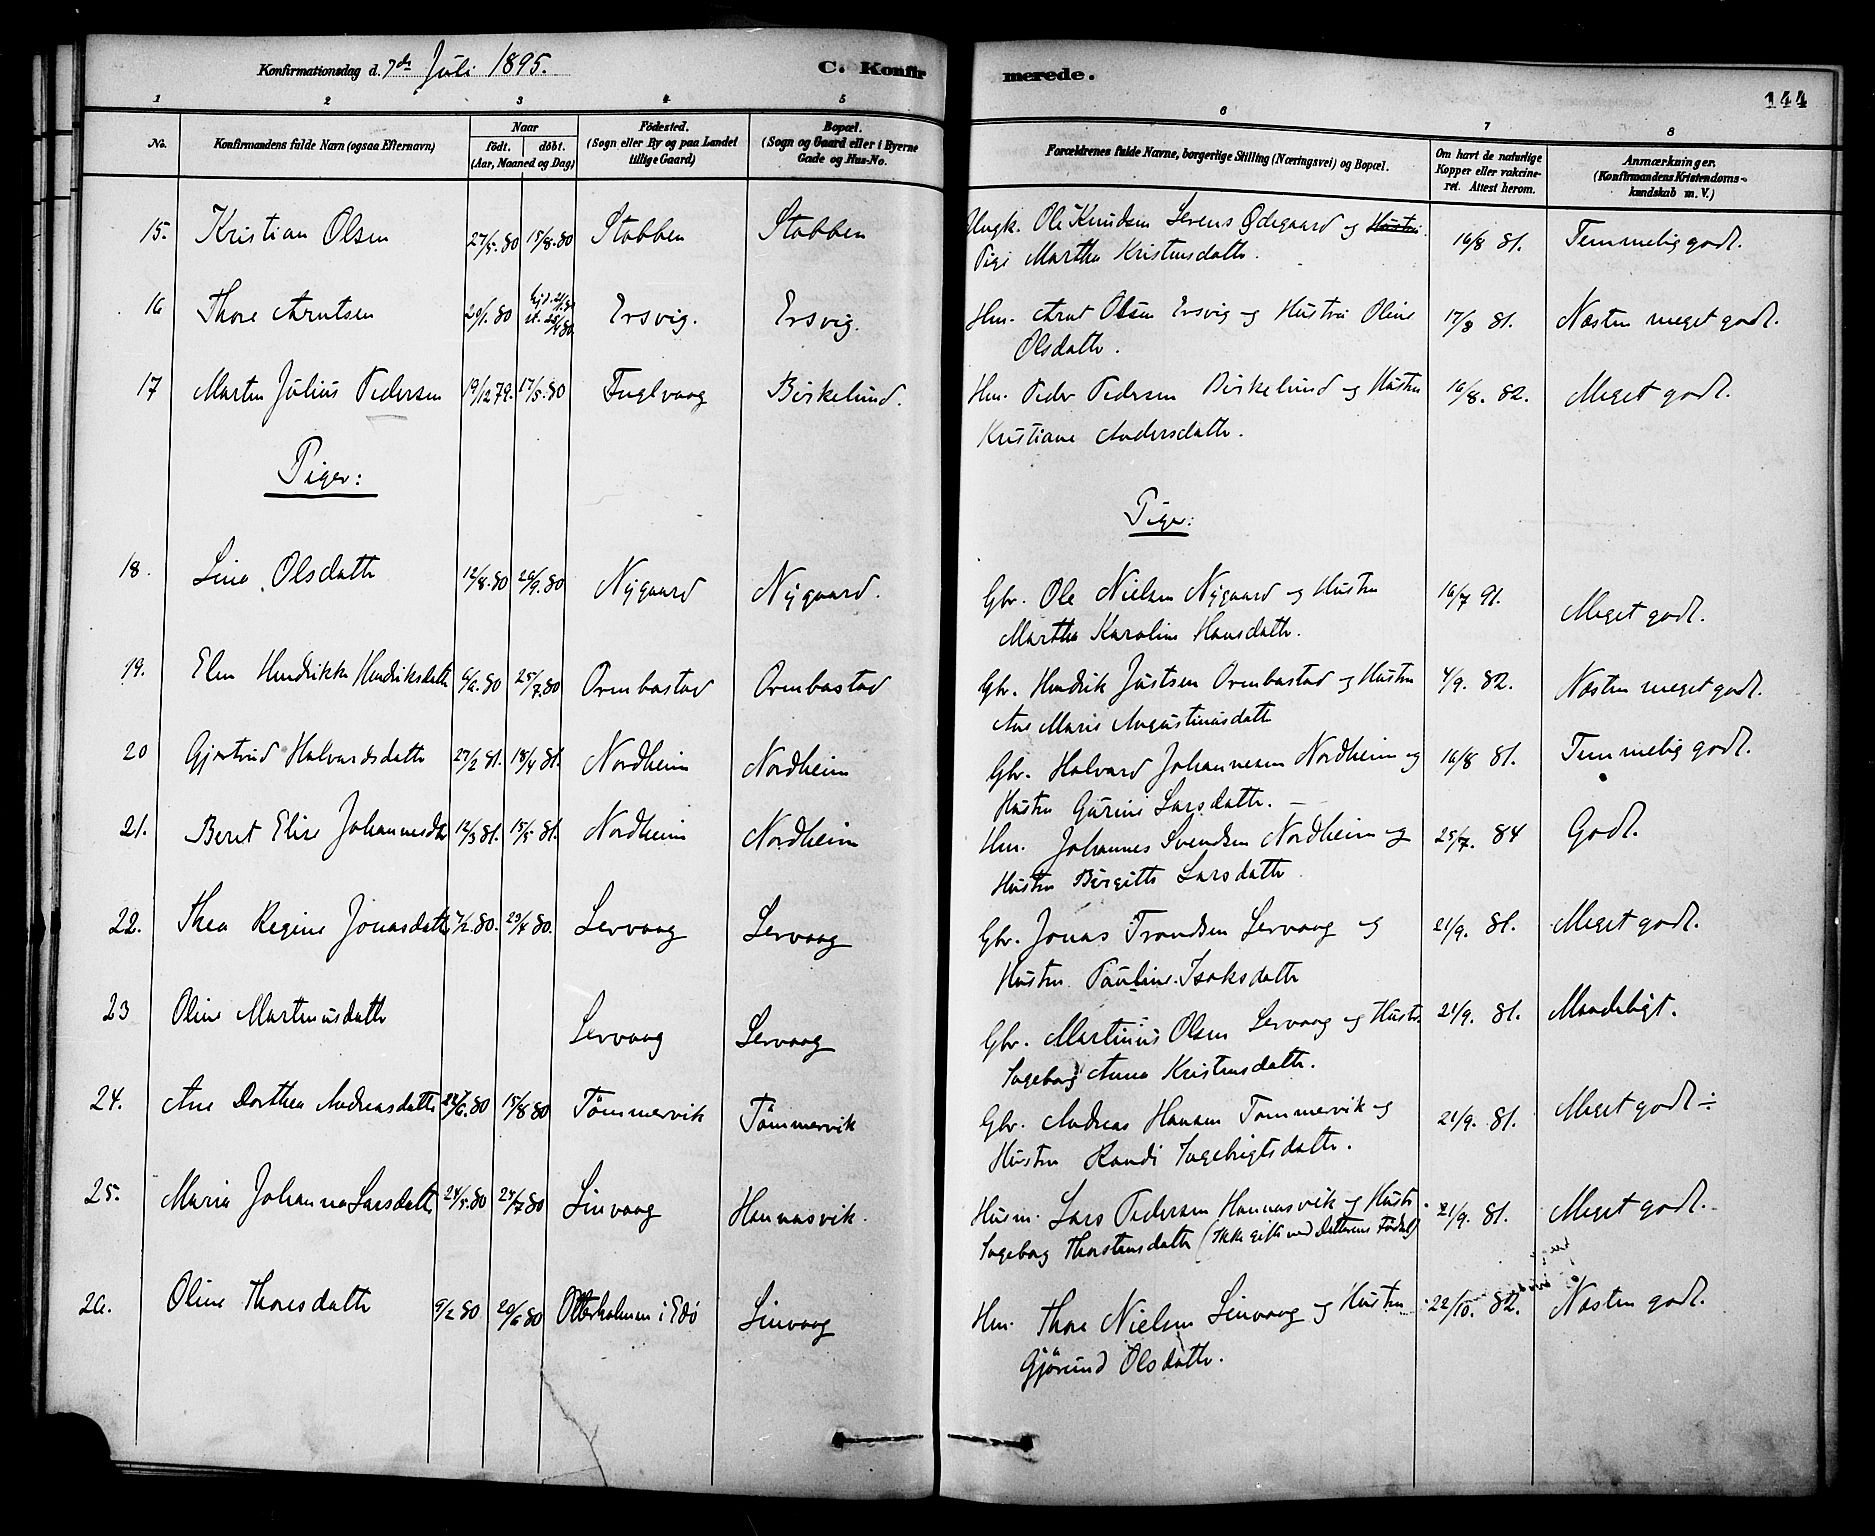 Konfirmationsdag d. 7de Juli 1895.
C. Konfirmerede.
144
1 2 3 4 5 6 7 8
No.
Konfirmandens fulde Navn (ogsaa Efternavn)
Naar
født. døbt.
(Aar, Maaned og Dag)
Fødested.
(Sogn eller By og paa Landet
tillige Gaard)
Bopæl.
(Sogn og Gaard eller i Byerne
Gade og Hus-No.
Forældrenes fulde Navne, borgerlige Stilling (Næringsvei) og Bopæl.
Om havt de naturlige
Kopper eller vakcine-
ret. Attest herom.
Anmærkninger.
(Konfirmandens Kristendoms-
kundskab m. V.)
15. Kristian Olsen 27/5.80 15/8.80 Stabben Stabben Ungk. Ole Knudsen Lerens Ødegaard og Hustru 16/8 81. Temmelig godt.
Pige Martha Kristensdattr.
16 Thore Arntsen 20/1.80 Ersvig. Ersvig. Hm. Arnt Olsen Ersvig og Hustru Oline 17/8 81. Næsten meget godt.
Olsdattr.
17 Martin Julius Pedersen 19/12 79. 17/5.80 Fuglvaag Birkelund. Hm. Peder Pedersen Birkelund og Hustru 16/8. 82. Meget godt.
Kristiane Andersdattr.
Piger: Piger:
18. Lina Olsdattr 12/8.80 26/9.80 Nygaard Nygaard. Gbr. Ole Nielsen Nygaard og Hustru 16/7 91. Meget godt.
Martha Karoline Hansdattr.
19. Elen Hendrikke Hendriksdattr 6/6.80 25/7.80 Ormbostad Ormbostad Gbr. Hendrik Justsen Ormbostad og Hustru 4/9. 82. Næsten meget godt.
Ane Marie Augustinusdattr
20 Gjertrud Halvardsdattr 27/2 81. 18/4 81. Nordheim Nordheim Gbr. Halvard Johannesen Nordheim og 16/8 81. Temmelig godt.
Hustru Gurine Larsdattr.
21. Beret Elise Johannesdtr 12/3 81. 15/5 81. Nordheim Nordheim Hm. Johannes Svendsen Nordheim og 25/7. 84 Godt.
Hustru Birgitte Larsdattr
22. Thea Regine Jonasdattr 7/2.80. 29/4 80. Lervaag Lervaag Gbr. Jonas Trondsen Lervaag og 21/9. 81. Meget godt.
Hustru Pauline Isaksdattr
23 Oline Martinusdattr Lervaag Lervaag Gbr. Martinus Olsen Lervaag og Hustr. 21/9. 81. Maadeligt.
Ingeborg Anna Kristensdattr.
24. Ane Dorthea Andreasdattr 24/6.80 15/8 80 Tømmervik Tømmervik Gbr. Andreas Hansen Tømmervik og 21/9. 81. Meget godt ÷
Hustru Randi Ingebrigtsdattr.
25. Maria Johanna Larsdattr 24/5.80 25/7 80 Linvaag Hannasvik. Husm. Lars Pedersen Hannasvik og Hustr 21/9. 81. Meget godt.
Ingeborg Thorstensdattr (Ikke gifte ved Datterens Fødsel)
26. Oline Thoresdattr 9/2 80 20/6 80 Otterholmen i Edø Linvaag Hm. Thore Nielsen Linvaag og Hustru 22/10. 82. Næsten godt.
Gjørund Olsdattr.